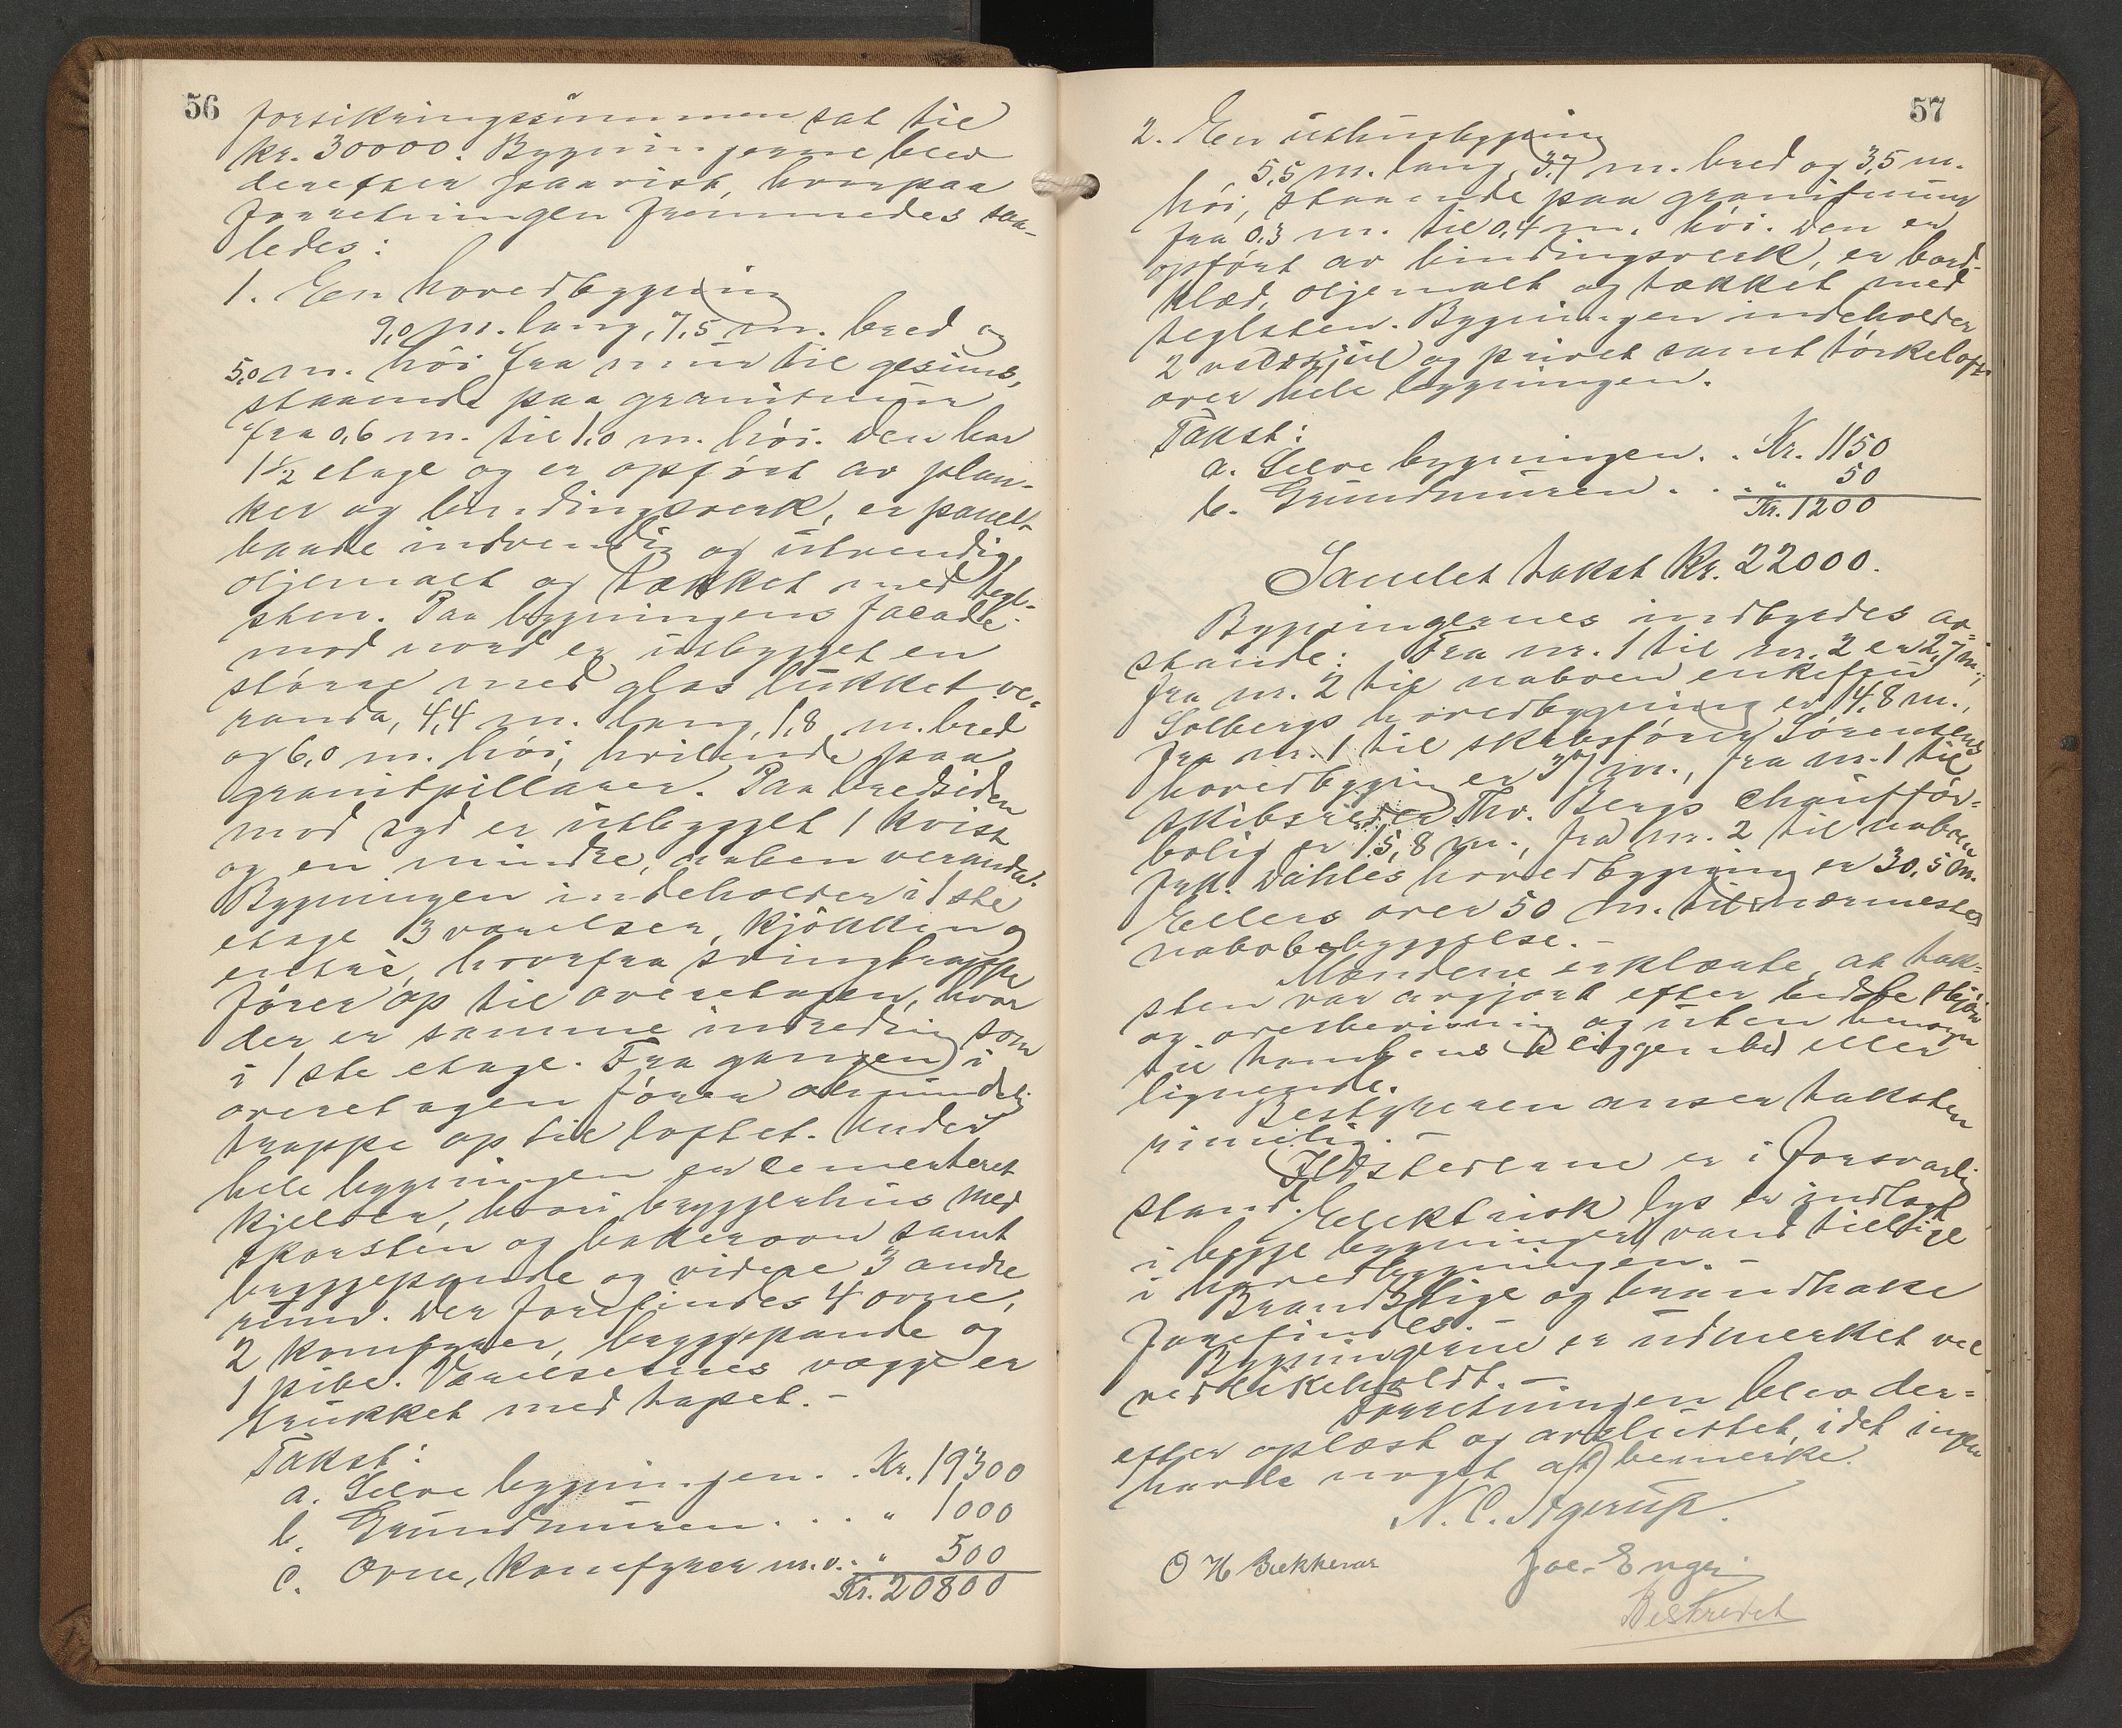 56
forsikringssummen sat til
kr. 30000. Bygningerne blev
derefter paavist, hvorpaa
forretningen fremmedes saa-
ledes:
1. En hovedbygning
9,0 m. lang, 7,5 m. bred og
5,0 m. høi fra mur til gesims,
staaende paa granitmur
fra 0,6 m. til 1,0 m. høi. Den har
1 1/2 etage og er opført av plan-
ker og bindingsverk, er panelt
baade indvendig og utvendig,
oljemalt og tækket med tegl-
sten. Paa bygningens facade
mod nord er utbygget en
større med glas lukket ve-
randa, 4,4 m. lang, 1,8 m. bred
og 6,0 m. høi, hvilende paa
granitpillarer. Paa bredsiden
mod syd er utbygget 1 kvist
og en mindre, aaben veranda.
Bygningen indeholder i 1ste
etage 3 værelser, kjøkken og
entré, hvorfra svingtrappe
fører op til overetagen, hvor
der er samme indredning som
i 1ste etage. Fra gangen i
overetagen fører almindelig
trappe op til loftet. Under
hele bygningen er cementeret
kjelder, hvori bryggerhus med
skorsten og bakerovn samt
bryggepande og videre 3 andre
rum. Der forefindes 4 ovne,
2 komfyrer, bryggepande og
1 pibe. Værelsernes vægge er
trukket med tapet. -
Takst:
a. Selve bygningen . . Kr. 19300
b. Grundmuren . . . . " 1000
c. Ovne, komfyrer m.v. . " 500
Kr. 20800
57
2. En uthusbygning
5,5 m. lang, 3,7 m. bred og 3,5 m.
høi, staaende paa granitmur
fra 0,3 m. til 0,4 m. høi. Den er
opført av bindingsverk, er bord-
klæd, oljemalt og tækket med
teglsten. Bygningen indeholder
2 vedskjul og privet samt tørkeloft
over hele bygningen.
Takst:
a. Selve bygningen . . Kr. 1150
b. Grundmuren . . . . " 50
Kr. 1200
Samlet takst Kr. 22000.
Bygningernes indbyrdes av-
stande: Fra nr. 1 til nr. 2 er 2,7 m.,
fra nr. 2 til naboen enkefru
Solbergs hovedbygning er 14,8 m.,
fra nr. 1 til skibsfører Sørensens
hovedbygning er 37 m., fra nr. 1 til
skibsreder Thv. Bergs chauffør-
bolig er 15,8 m., fra nr. 2 til naboen
frk. Dahles hovedbygning er 30,5 m.
Ellers over 50 m. til nærmeste
nabobebyggelse. -
Mændene erklærte, at tak-
sten var avgjort efter bedste skjøn
og overbevisning og uten hensyn
til tomtens beliggenhet eller
lignende.
Bestyreren anser taksten
rimelig. -
Ildstederne er i forsvarlig
stand. Elektrisk lys er indlagt
i begge bygninger, vand tillike
i hovedbygningen. -
Brandstige og brandhake
forefindes. -
Bygningerne er udmerket vel
vedlikeholdt. -
Forretningen blev der-
efter oplæst og avsluttet, idet ingen
havde noget at bemerke.
N. C. Agerup.
O H Bækkevar
Joe. Enger
Bestredet